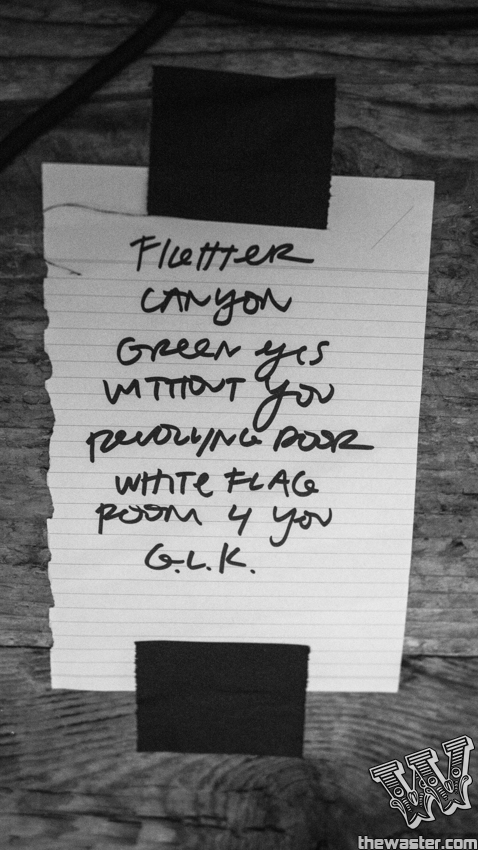 FIGHTER
CANYON
GREEN eyes
WITHOUT YOU
REVOLVING DOOR
WHITE FLAG
ROOM 4 YOU
G.L.K.
W
thewaster.com